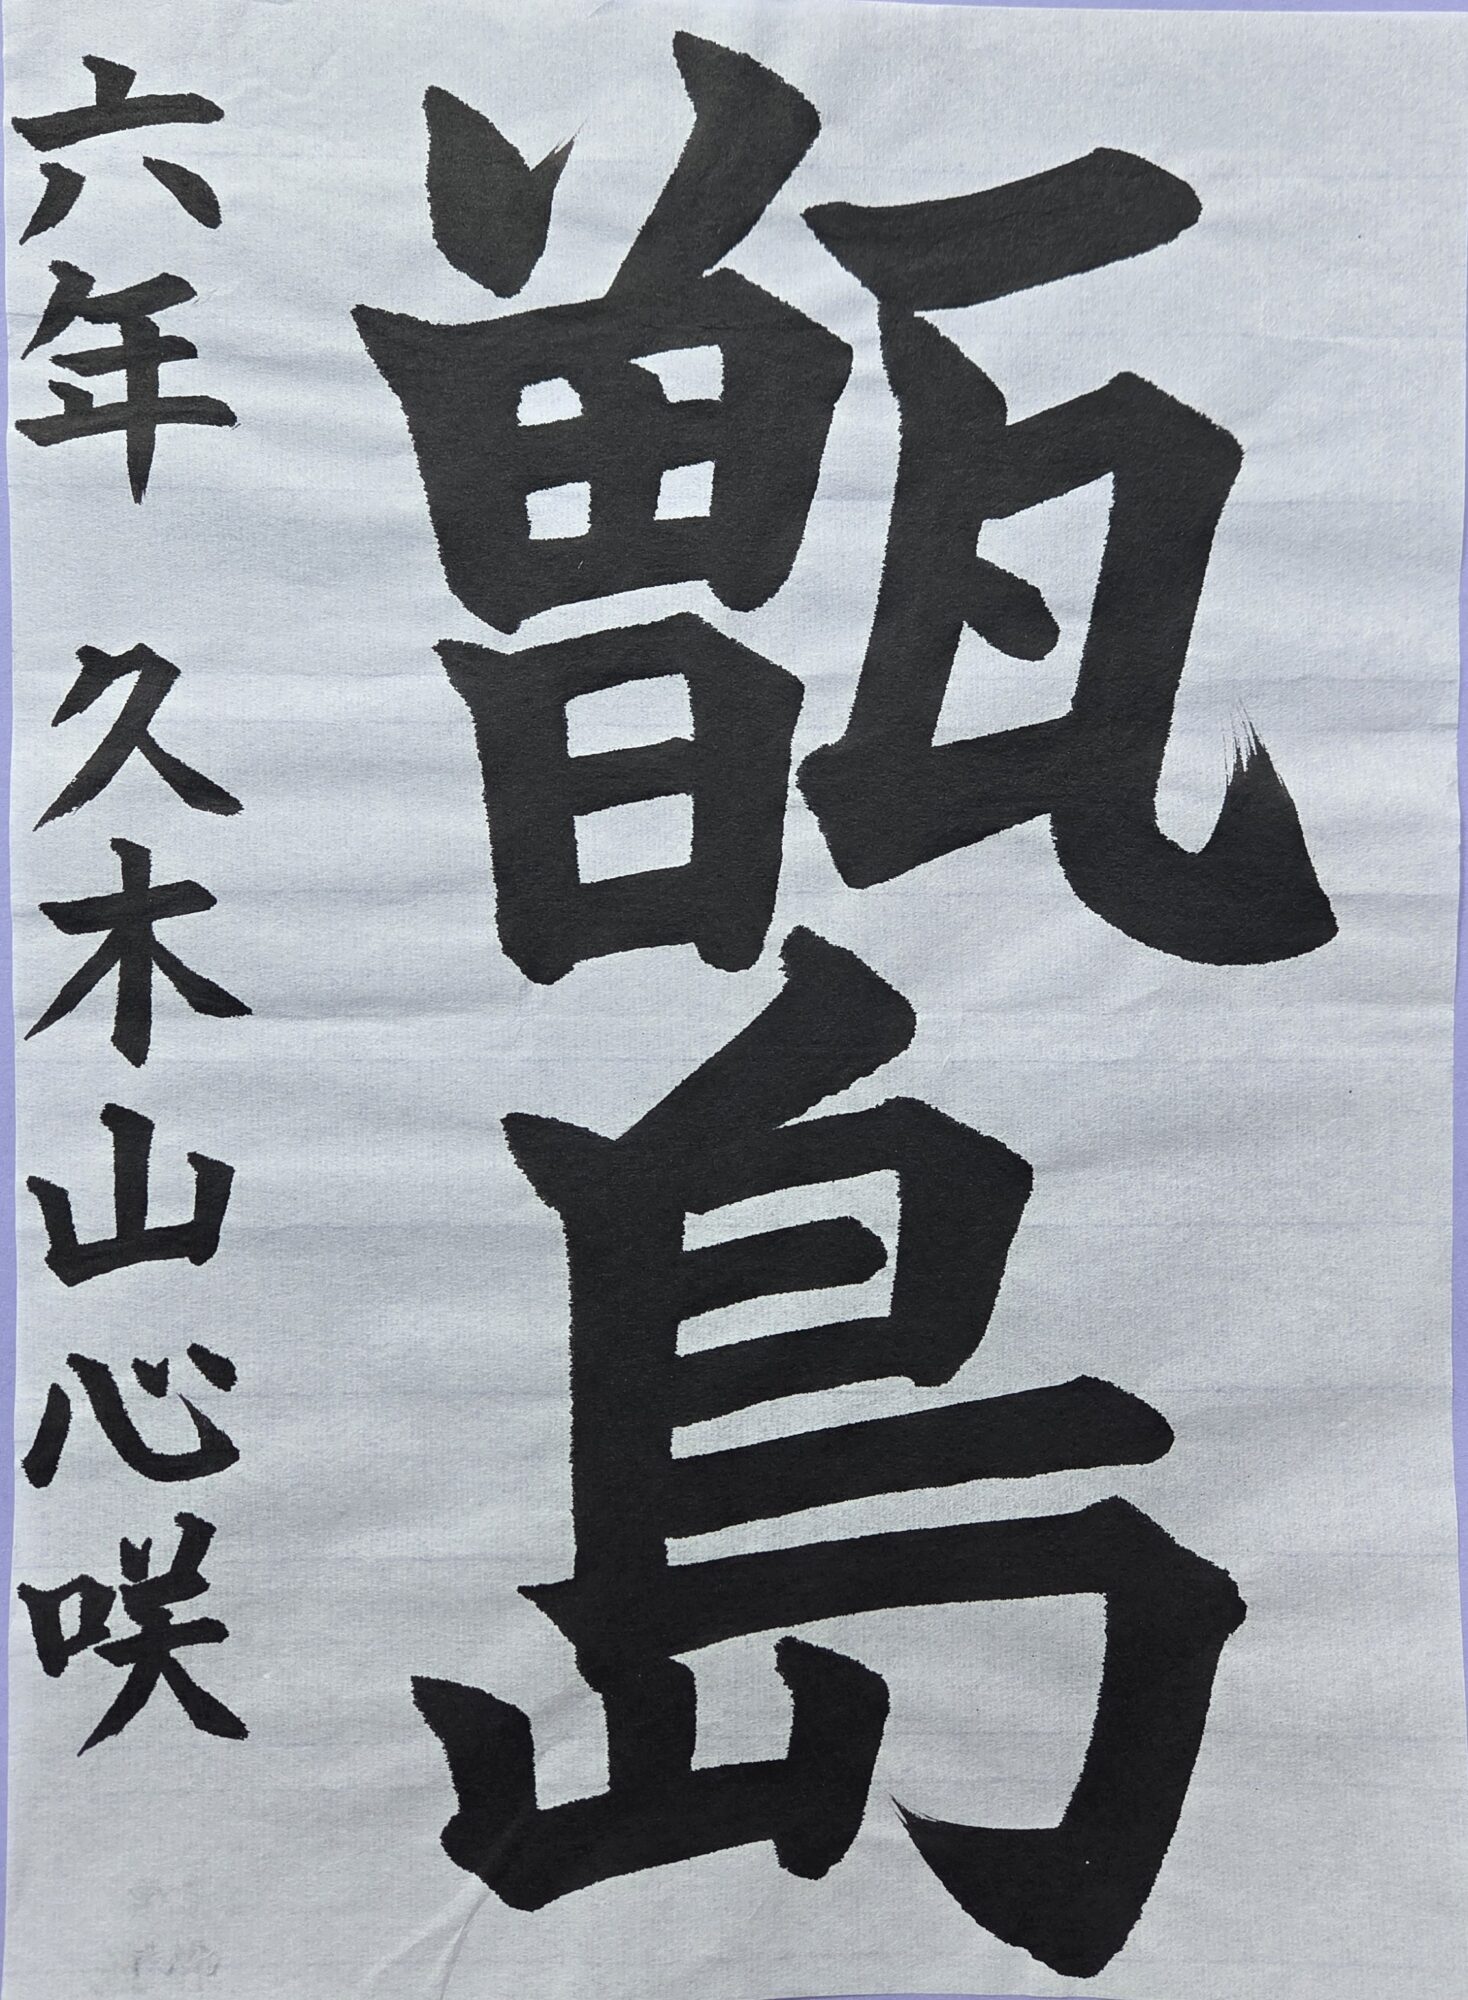 甑島
六年 久木山心咲